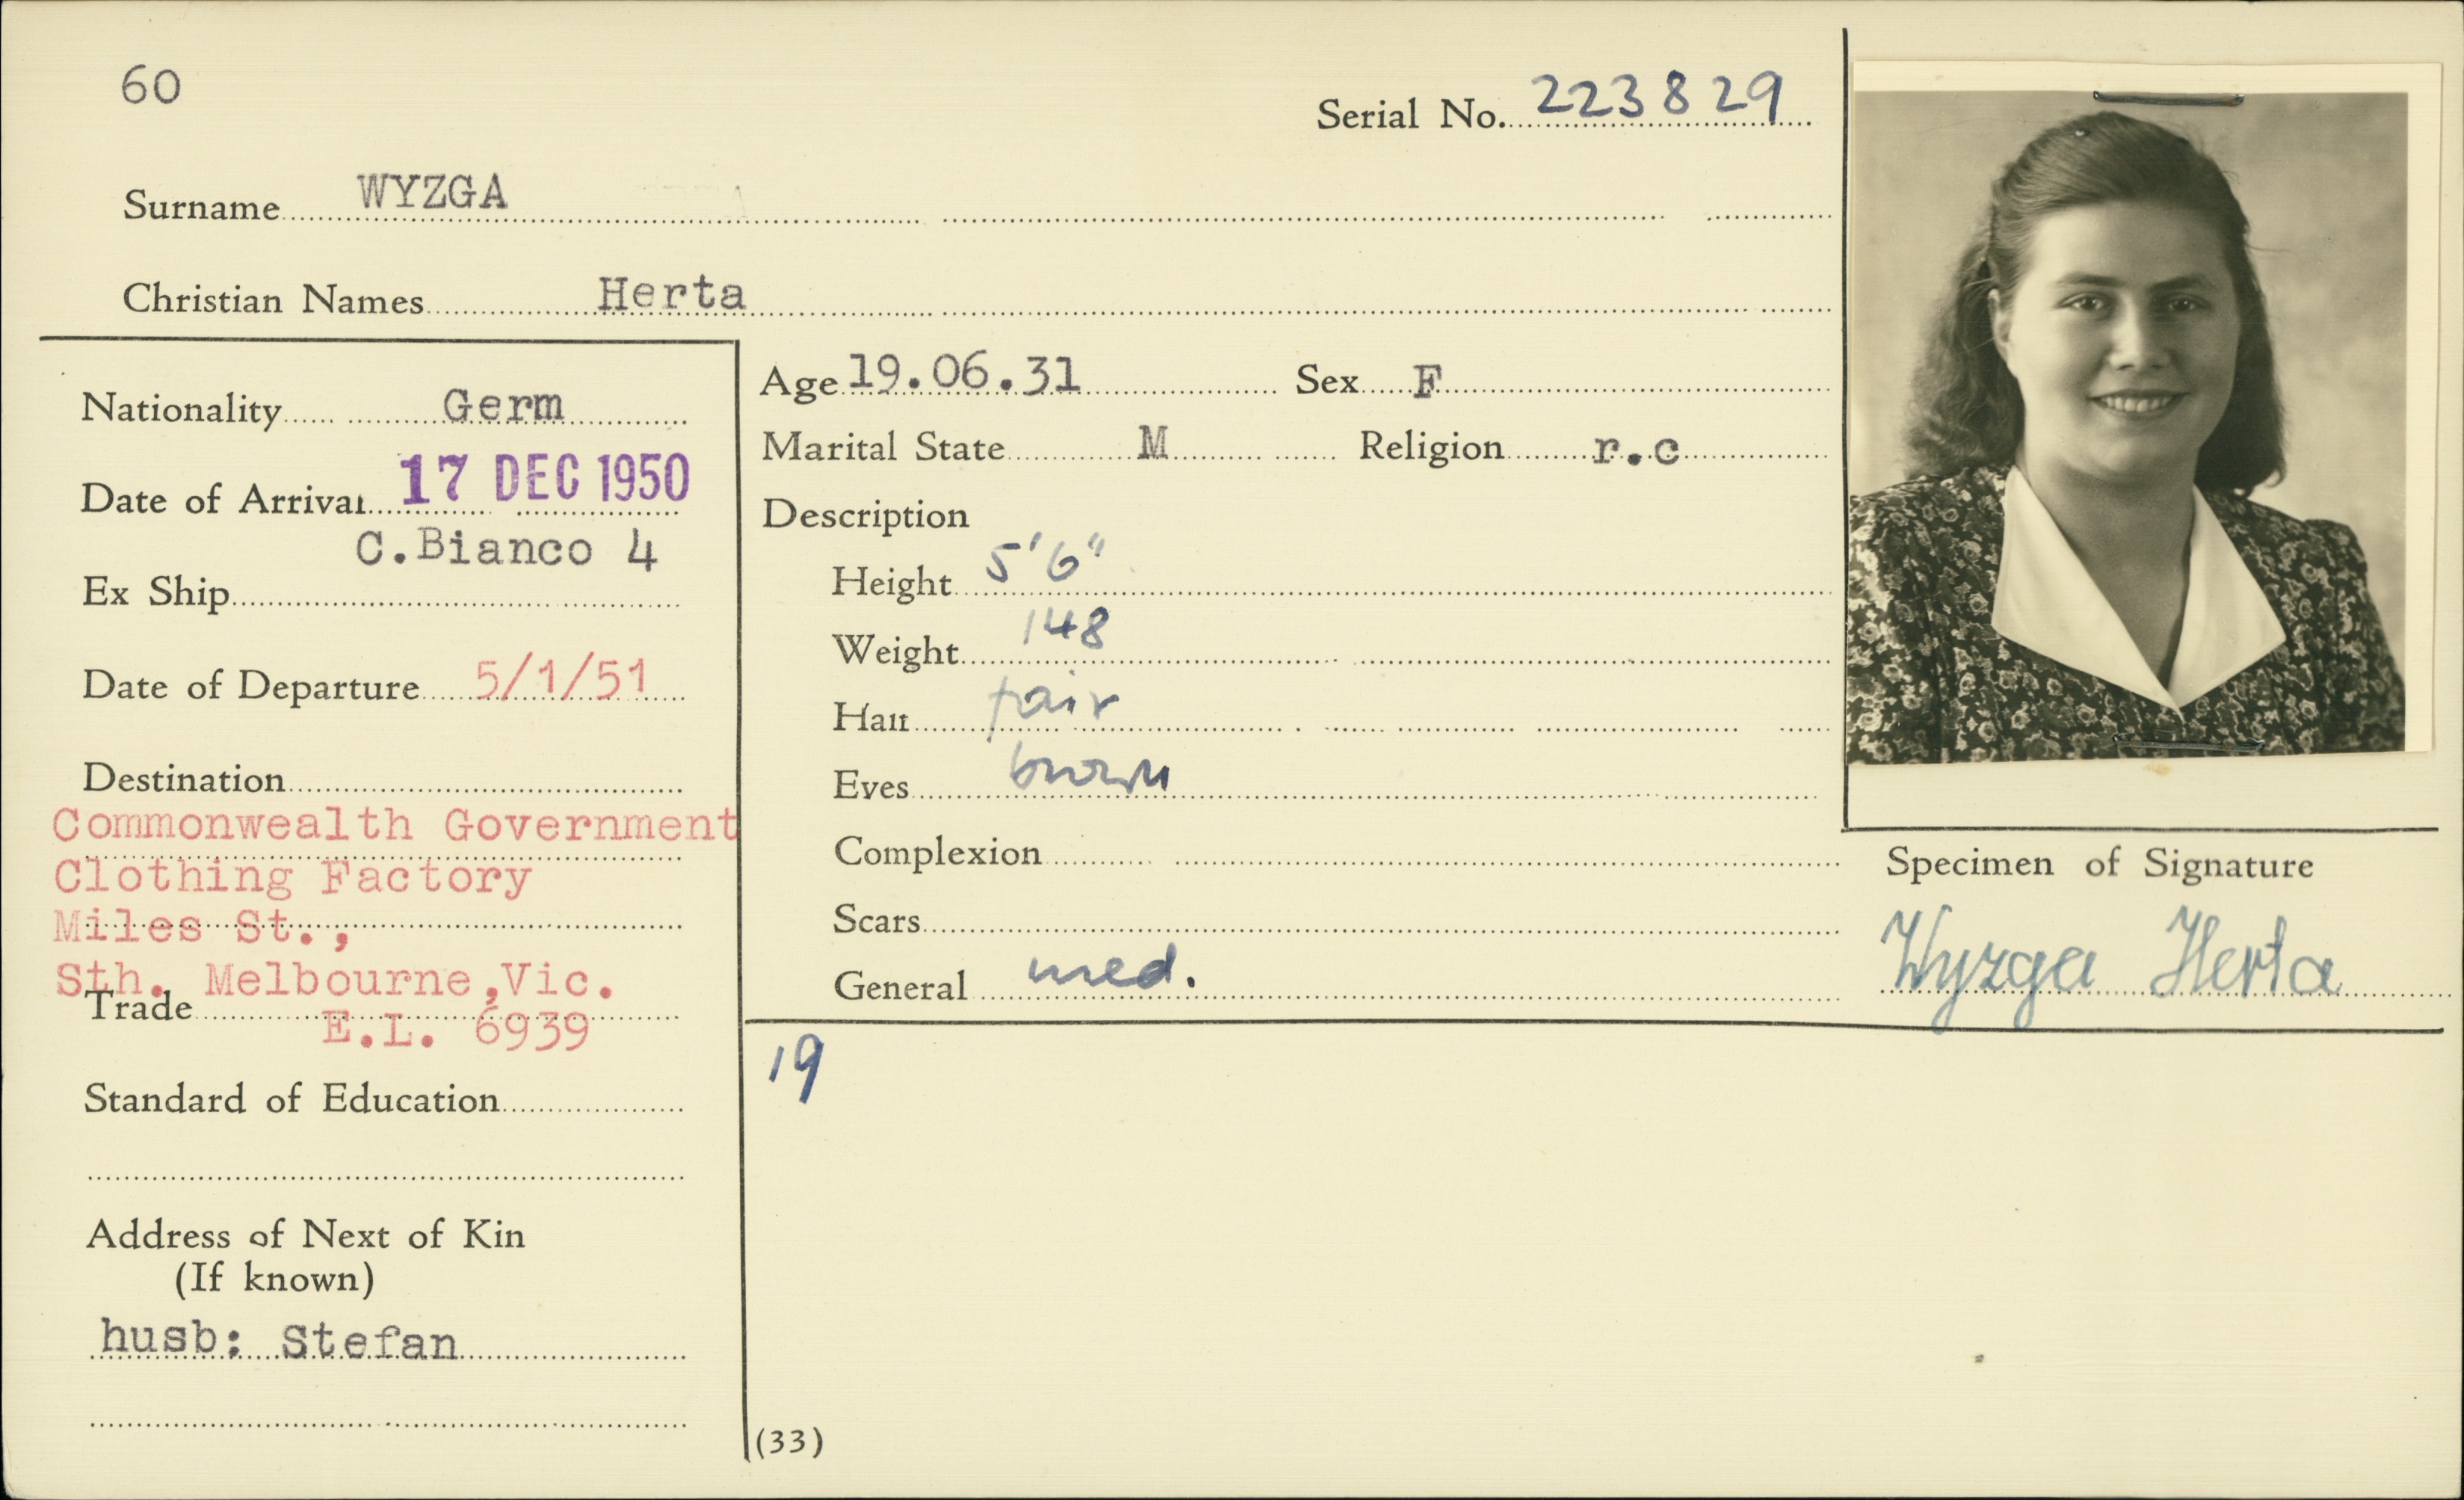 60
Serial No. 223829
Surname WYZGA
Christian Names Herta
Nationality Germ
Date of Arrival 17 DEC 1950
C.Bianco 4
Ex Ship
Date of Departure 5/1/51
Destination
Commonwealth Government
Clothing Factory
Miles St.,
Sth. Melbourne,Vic.
Trade
E.L. 6939
Standard of Education
Address of Next of Kin
(If known)
husb: Stefan
Age 19.06.31 Sex F
Marital State M Religion r.c
Description
Height 5'6"
Weight 148
Hair fair
Eyes brown
Complexion
Scars
General med.
19
(33)
Specimen of Signature
Wyzga Herta